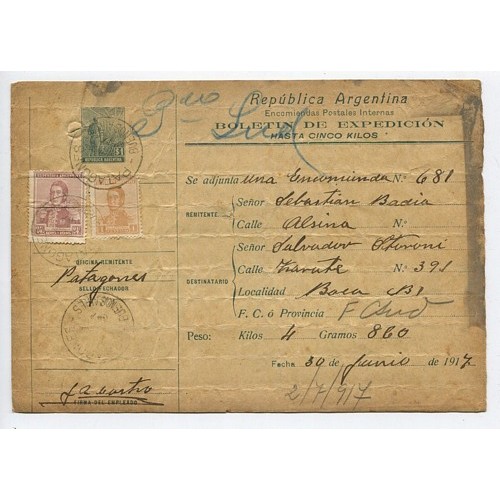 República Argentina
Encomiendas Postales Internas
BOLETIN DE EXPEDICIÓN
HASTA CINCO KILOS
3ra Sud
REPUBLICA ARGENTINA
Se adjunta una Encomienda N.º 681
REMITENTE
Señor Sebastian Badia
Calle Alsina
DESTINATARIO
Señor Salvador
Calle Zarate N.º 391
Localidad Boca
F. C. ó Provincia F C Sud
Peso: Kilos 4 Gramos 860
Fecha 30 de Junio de 1917
2/7/917
OFICINA REMITENTE
Patagones
SELLO FECHADOR
FIRMA DEL EMPLEADO